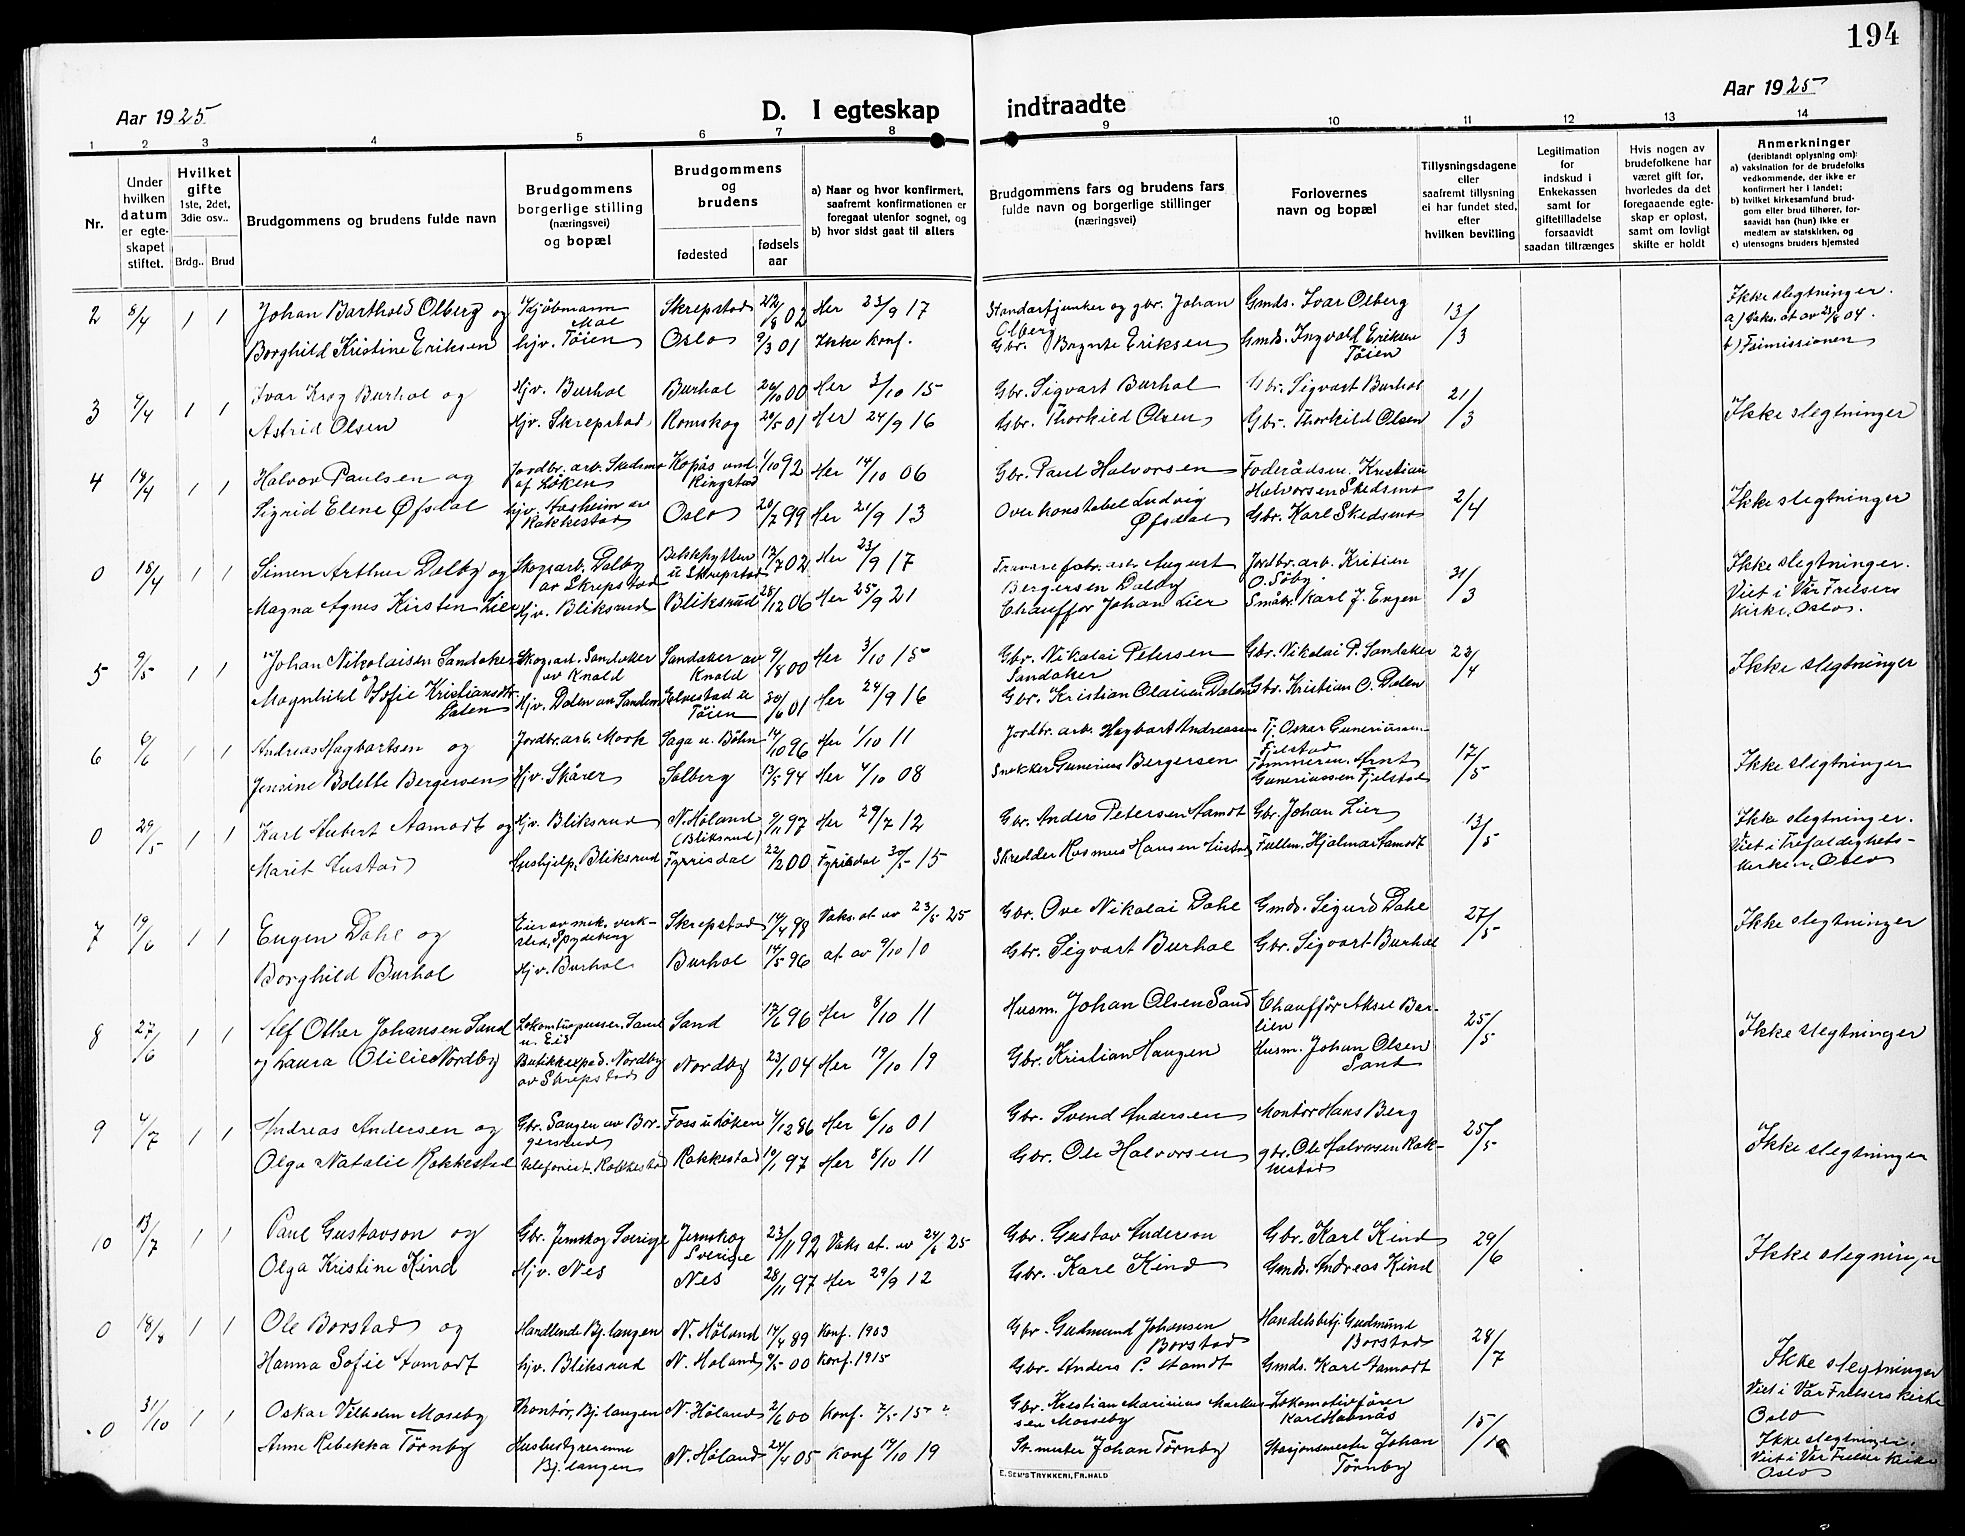 194
Aar 1925
D. I egteskap
indtraadte
Aar 1925
1 2 3 4 5 6 7 8 9 10 11 12 13 14
Nr.
Under hvilken datum er egteskapet stiftet.
Hvilket gifte 1ste, 2det, 3die osv..
Brdg.. Brud
Brudgommens og brudens fulde navn
Brudgommens borgerlige stilling (næringsvei) og bopæl
Brudgommens og brudens
fødested
fødsels aar
a) Naar og hvor konfirmert, saafremt konfirmationen er foregaat utenfor sognet, og
b) hvor sidst gaat til alters
Brudgommens fars og brudens fars fulde navn og borgerlige stillinger (næringsvei)
Forlovernes navn og bopæl
Tillysningsdagene eller saafremt tillysning ei har fundet sted, efter hvilken bevilling
Legitimation for indskud i Enkekassen samt for giftetilladelse forsaavidt saadan tiltrænges
Hvis nogen av brudefolkene har været gift før, hvorledes da det foregaaende egteskap er opløst, samt om lovligt skifte er holdt
Anmerkninger
(deriblandt oplysning om):
a) vaksination for de brudefolks vedkommende, der ikke er konfirmert her i landet;
b) hvilket kirkesamfund brudgom eller brud tilhører, forsaavidt han (hun) ikke er medlem av statskirken, og
c) utensogns bruders hjemsted
2 8/4 1 1 Johan Barthold Olberg og Kjøbmann Skrepstad 22/8 02 Her 23/9 17 Standarfjunker og gbr. Johan Olberg Gmds. Ivar Olberg 13/3 Ikke slegtninger.
Borghild Kristine Eriksen hjv. Töien Oslo 9/3 01 Ikke konf. Gbr. Brynte Eriksen Gmds. Ingvald Eriksen Töien
3 4/4 1 1 Ivar Krog Burhol og Hjv. Burhol Burhol 26/10 00 Her 3/10 15 Gbr. Sigvart Burhol Gbr. Sigvart Burhol 21/3 Ikke slegtninger
Astrid Olsen Hjv. Skrepstad Romskog 20/5 01 Her 24/9 16 Gbr. Thorkild Olsen Gbr. Thorkild Olsen
4 14/4 1 1 Halvor Paulsen og Jordbr. arb. Skedsmo af Løken Kopås und. Ringstad 1/10 92 Her 14/10 06 Gbr. Paul Halvorsen Foderådsm. Kristian Halvorsen Skedsmo 2/4 Ikke slegtninger
Sigrid Elene Øfsdal hjv. Aasheim av Rakkestad Oslo 20/7 99 Her 21/9 13 Overkonstabel Ludvig Øfsdal Gbr. Karl Skedsmo
0 18/4 1 1 Simen Arthur Dalby og Skogsarb. Dalby av Skrepstad Bekkhytten u Skrepstad 17/7 02 Her 23/9 17 Travarefabr. arb. August Bergersen Dalby Jordbr. arb. Kristien O. Söby 31/3 Ikke slegtninger.
Magna Agnes Kirsten Lier Hjv. Bliksrud Bliksrud 28/12 06 Her 25/9 21 Chauffør Johan Lier Småbr. Karl J. Engen Viet i Vår Frelsers Kirke, Oslo.
5 9/5 1 1 Johan Nikolaisen Sandaker Skogsarb. Sandaker av Knold Sandaker av Knold 9/8 00 Her 3/10 15 Gbr. Nikolai Petersen Sandaker Gbr. Nikolai P. Sandaker 23/4 Ikke slegtninger
Magnhild Sofie Kristiansdtr. Dalen Hjv. Dalen av Sandem Elvestad u Töien 30/6 01 Her 24/9 16 Gbr. Kristian Olaisen Dalen Gbr. Kristian O. Dalen
6 6/6 1 1 Andreas Hagbartsen og Jordbr. arb. Mork Saga u. Böhn 14/10 96 Her 1/10 11 Jordbr. arb. Hagbart Andreassen Tj. Oskar Guneriussen Fjelstad 17/5 Ikke slegtninger
Jensine Bolette Bergersen Hjv. Skårer Solberg 13/5 94 Her 4/10 08 Snekker Gunerius Bergersen Tömmerm. Arnt Guneriussen Fjelstad
0 29/5 1 1 Karl Hubert Aamodt og Hjv. Bliksrud N. Höland (Bliksrud) 9/11 97 Her 29/7 12 Gbr. Anders Petersen Aamodt Gbr. Johan Lier 13/5 Ikke slegtninger.
Marit Austad Hushjelp, Bliksrud Fyrrisdal 22/2 00 Fyrisdal 30/5 15 Skredder Rasmus Hansen Austad Fullm. Hjalmar Aamodt Viet i Trefoldighetskirken, Oslo
7 19/6 1 1 Eugen Dahl og Eier av mek. verksted, Spydeberg Skrepstad 14/4 98 Vaks. at. av 23/5 25 Gbr. Ove Nikolai Dahl Gmds. Sigurd Dahl 27/5 Ikke slegtninger
Borghild Burhol Hjv. Burhol Burhol 14/5 96 at av 9/10 10 Gbr. Sigvart Burhol Gbr. Sigvart Burhol
8 27/6 1 1 Alf Other Johansen Sand Lokomtivpusser, Sand u. Eid Sand 17/6 96 Her 8/10 11 Husm. Johan Olsen Sand Chauffør Aksel Barlien 25/5 Ikke slegtninger
og Laura Otilie Nordby Butikkexped. Nordby av Skrepstad Nordby 23/1 04 Her 19/10 19 Gbr. Kristian Haugen Husm. Johan Olsen Sand
9 4/7 1 1 Andreas Andersen og Gbr. Saugen av Borgersrud Foss u Löken 4/12 86 Her 6/10 01 Gbr. Svend Andersen Montør Hans Berg 25/5 Ikke slegtninger
Olga Natalie Rakkestad telefonist, Rakkestad Rakkestad 19/1 97 Her 8/10 11 Gbr. Ole Halvorsen gbr. Ole Halvorsen Rakkestad
10 13/7 1 1 Paul Gustavson og Gbr. Jernskog Sverige Jernskog Sverige 23/11 92 Vaks at. av 24/6 25 Gbr. Gustav Anderson Gbr. Karl Kind 29/6 Ikke slegninger
Olga Kristine Kind Hjv. Nes Nes 28/11 97 Her 29/9 12 Gbr. Karl Kind Gmds. Andreas Kind
0 18/8 1 1 Ole Borstad og Handlende Bj.langen N. Höland 14/4 89 Konf. 1903 Gbr. Gudmund Johansen Borstad Handelsbetj. Gudmund Borstad 28/7 Ikke slegtninger
Hanna Sofie Aamodt hjv. Bliksrud N. Höland 00 Konf. 1915 Gbr. Anders P. Aamodt Gmds. Karl Aamodt Viet i Vår Frelsers Kirke Oslo
0 31/10 1 1 Oskar Vilhelm Moseby Kontör, Bj.langen N. Höland 2/6 00 Konf. 7/5 15 Gbr. Kristian Marinius Markussen Mosseby Lokomotivfører Karl Havnås 15/10 Ikke slegtninger.
Anne Rebekka Törnby Husbestyrerinne Bj.langen N. Höland 24/4 05 Konf 19/10 19 St. mester Johan Törnby Stasjonsmester Johan Törnby Viet i Vår Frelsers Kirke Oslo
E. SEM'S TRYKKERI, FR.HALD